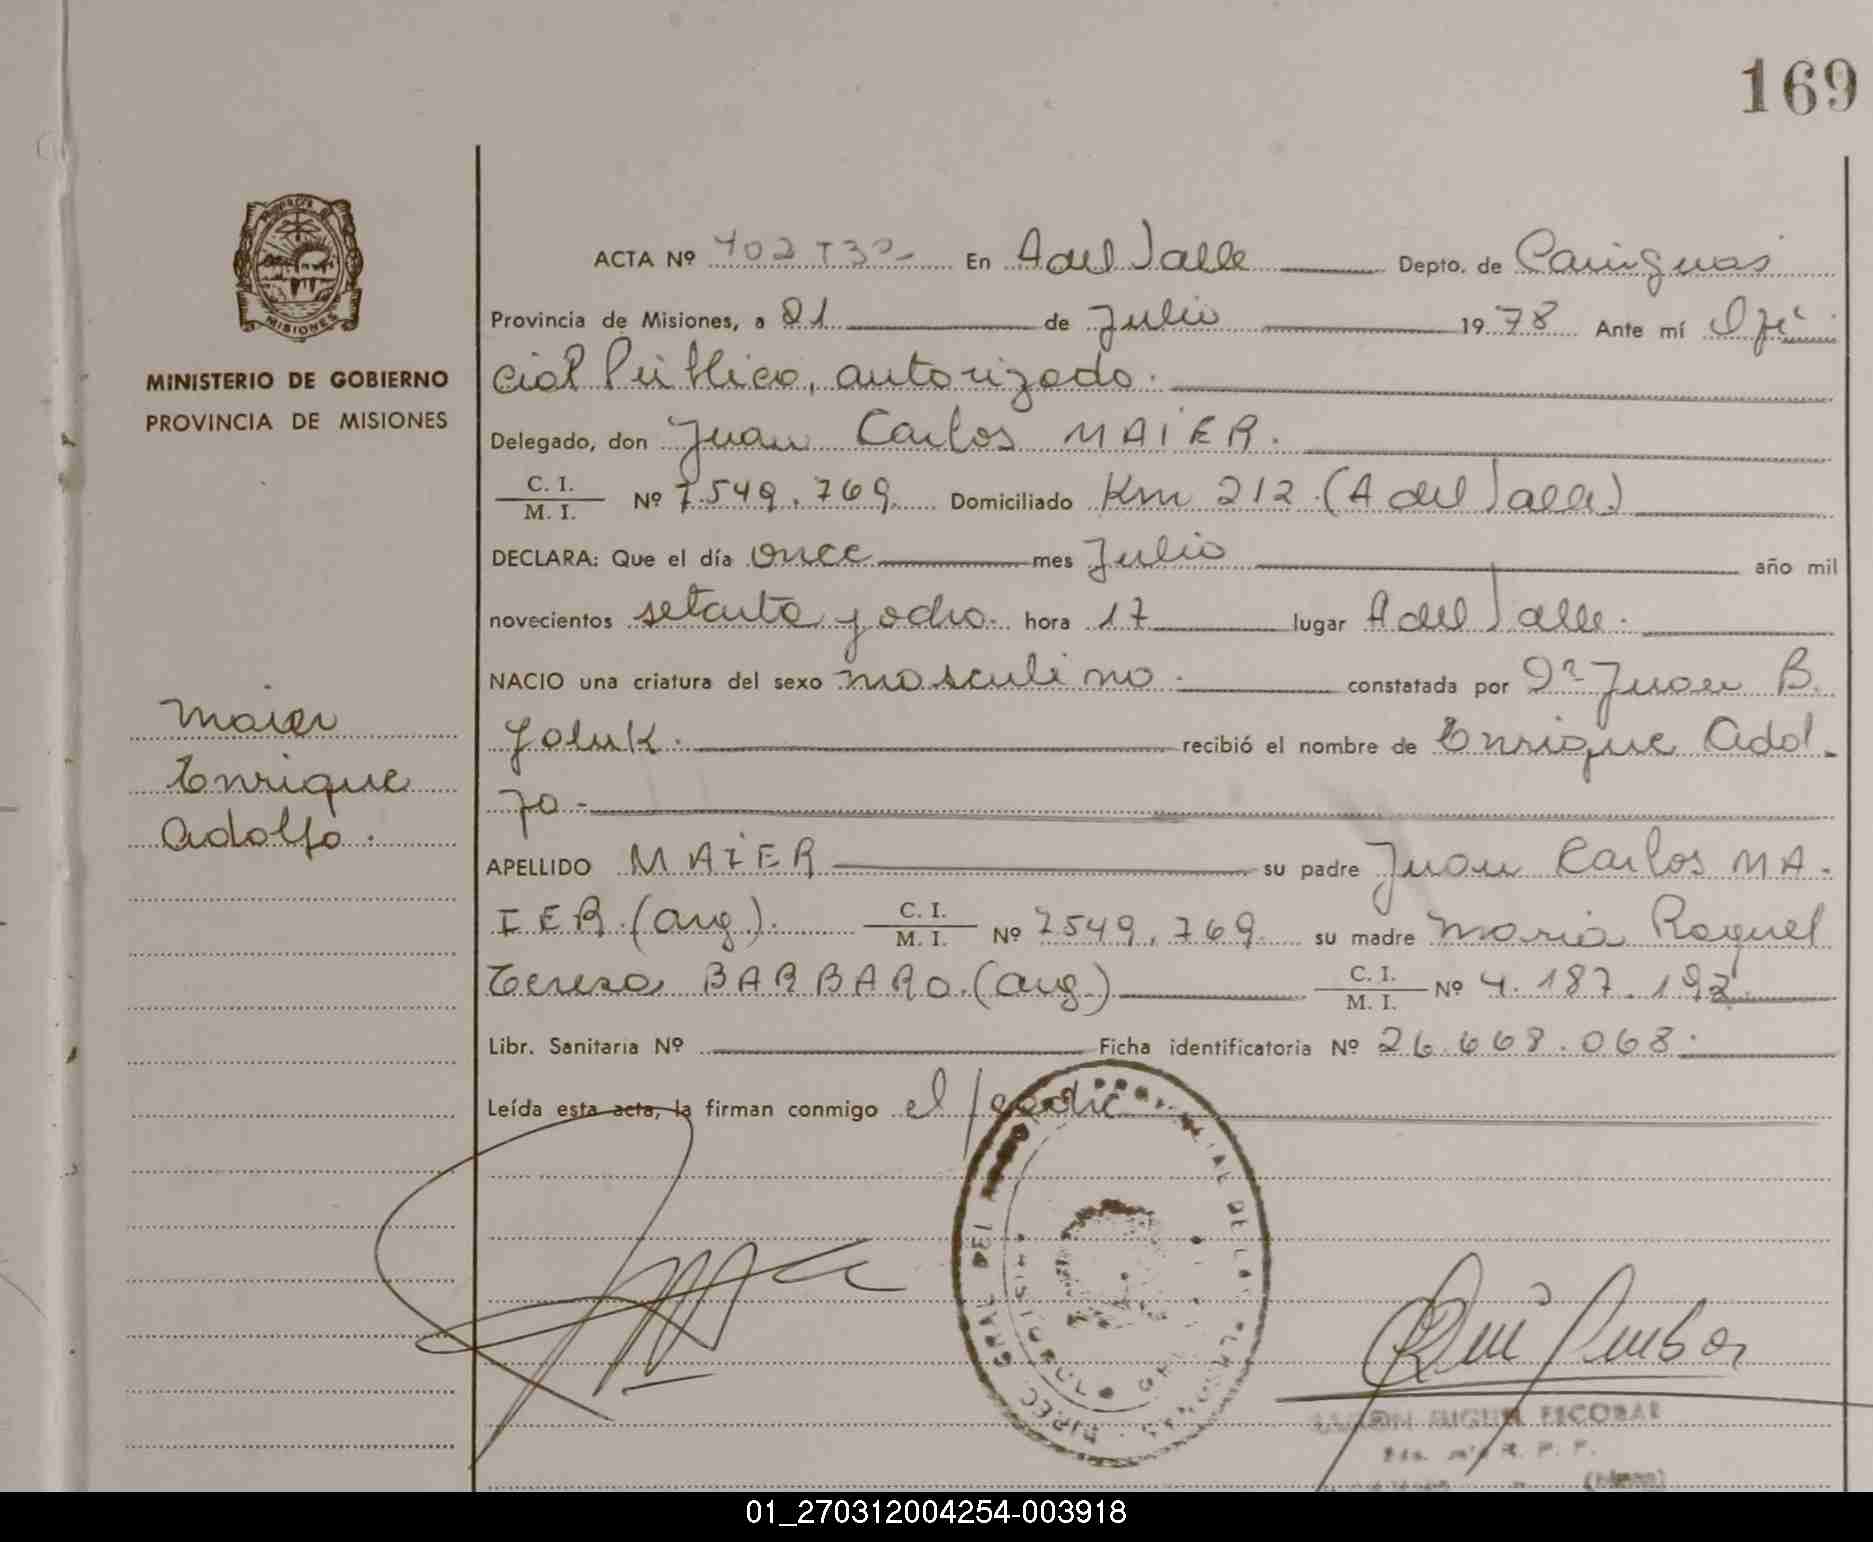 169
MISIONES
MINISTERIO DE GOBIERNO
PROVINCIA DE MISIONES
Maier
Enrique
Adolfo.
ACTA Nº 702 T3º- En A del Valle Depto. de Cainguas
Provincia de Misiones, a 21 de Julio 1978 Ante mí Ofi
cial Público, autorizado.
Delegado, don Juan Carlos MAIER.
C. I. / M. I. Nº 7.549.769. Domiciliado Km 212 (A del Valle)
DECLARA: Que el día once mes Julio año mil
novecientos setenta y ocho. hora 17 lugar A del Valle.
NACIO una criatura del sexo masculino. constatada por Dr Juan B.
recibió el nombre de Enrique Adol-
fo-
APELLIDO MAIER su padre Juan Carlos MA-
IER. (arg). C. I. / M. I. Nº 7549.769. su madre Maria Raquel
Teresa BARBARO. (arg.) C. I. / M. I. Nº 4.187.192.
Libr. Sanitaria Nº Ficha identificatoria Nº 26.668.068.
Leída esta acta, la firman conmigo el padre
DIREC. GRAL DEL
MIGUEL ESCOBAR
01_270312004254-003918